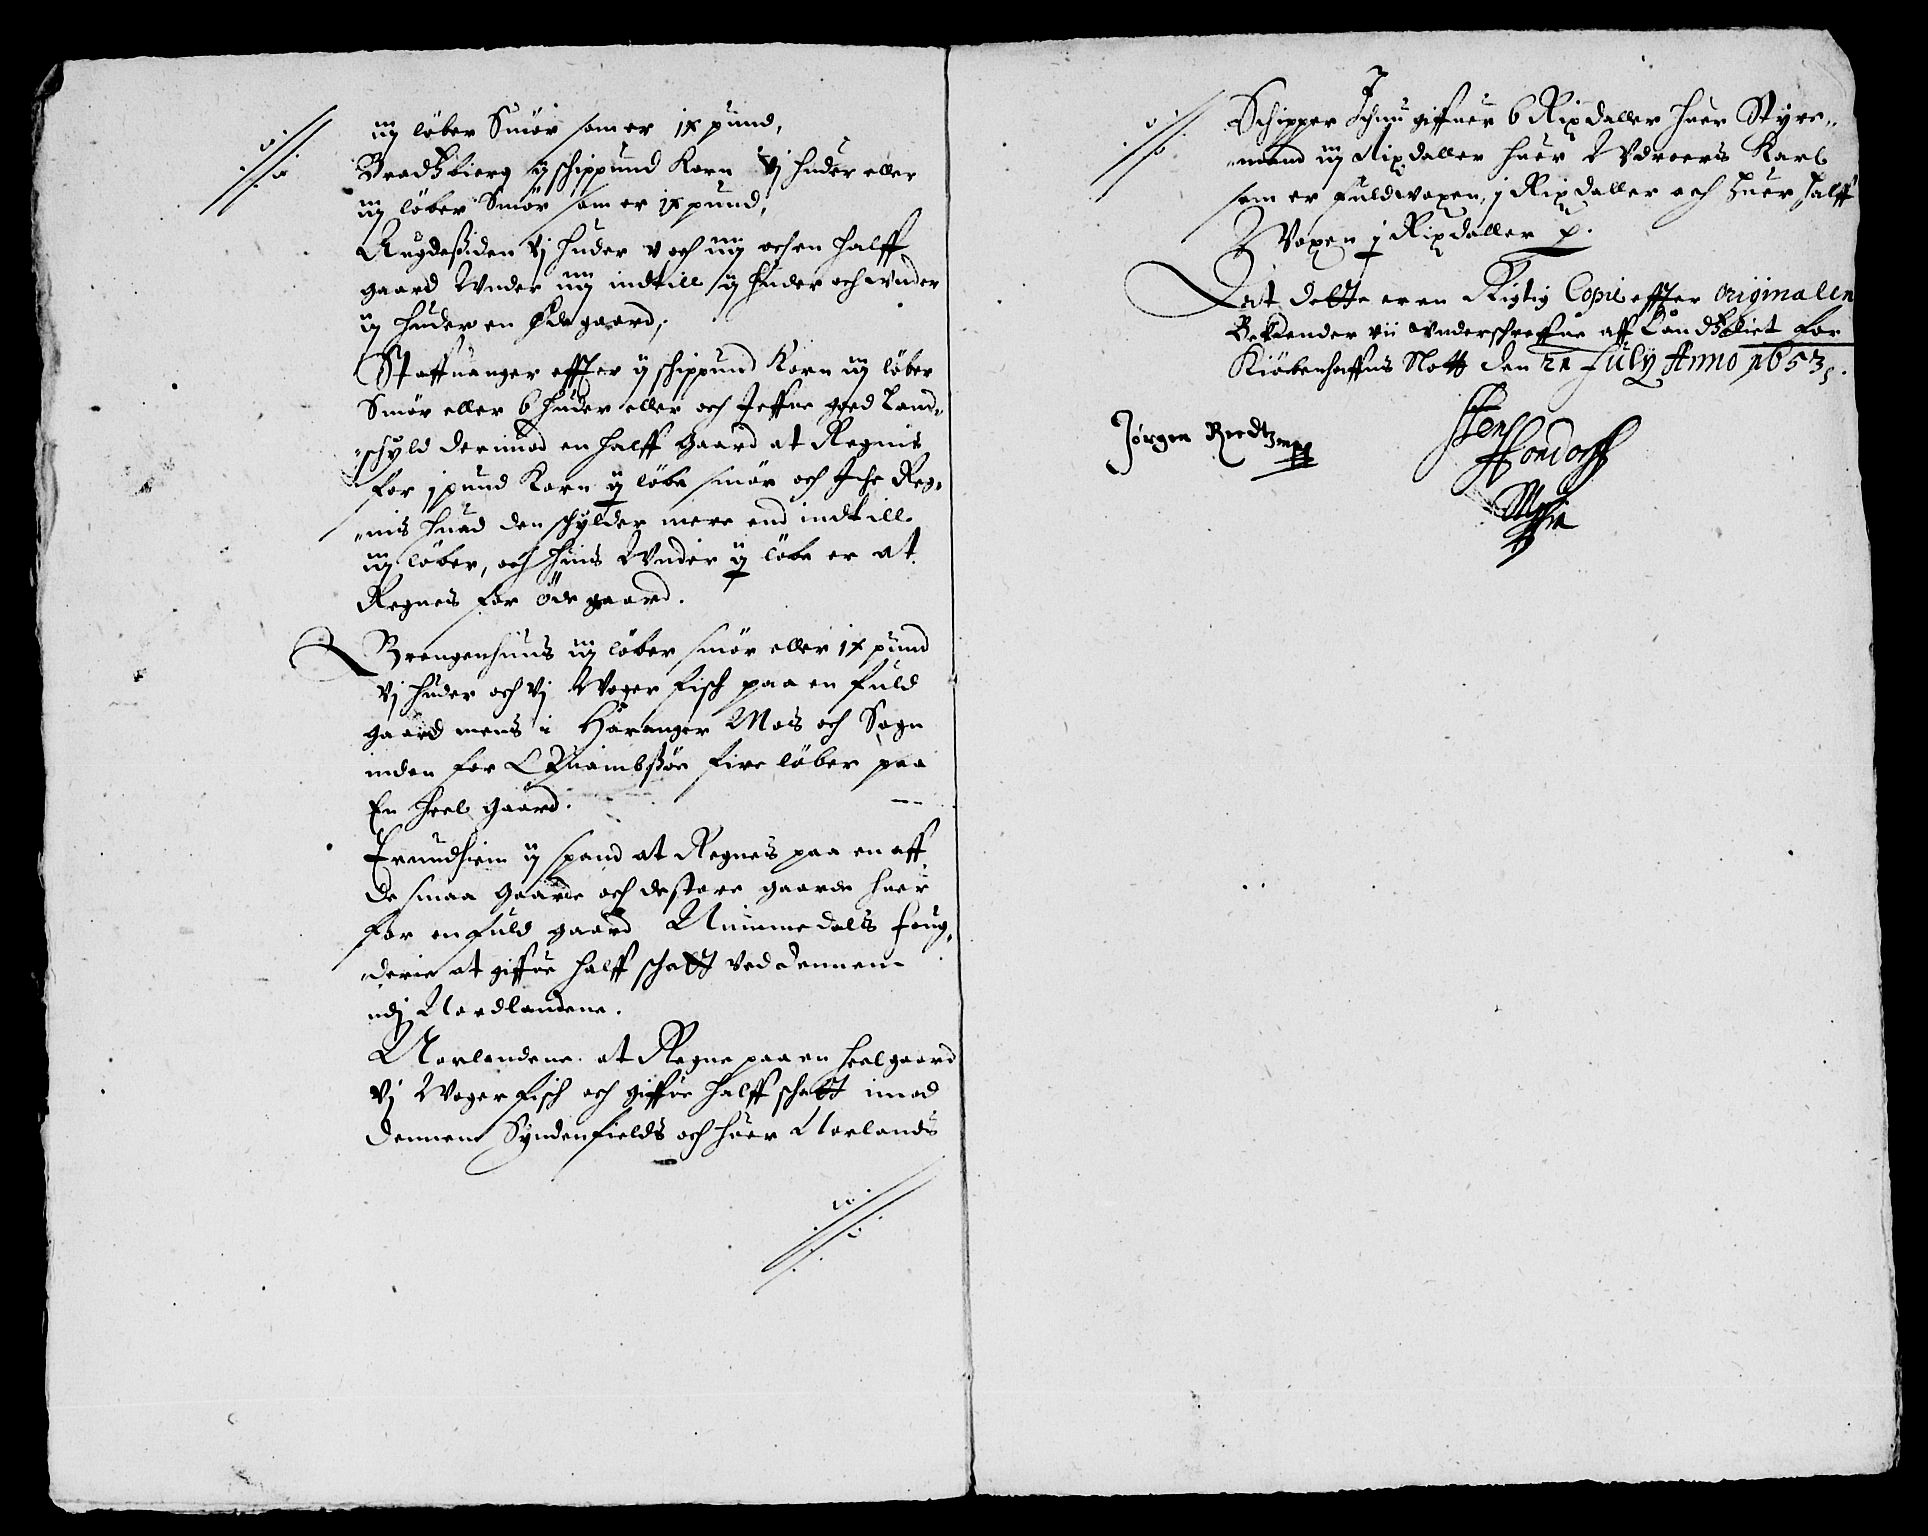 iij löber Smör som er ix pund,
Bradtzbierg ij schippund Korn vj huder eller
iij löber Smör som er ix pund,
Augdesiden vj huder v och iiij och en halff
gaard Wnder iiij indtill ij huder och wnder
ij huder en Öde gaard,
Staffuanger effter ij schippund Korn iij löber
Smör eller 6 huder eller och Jeffne goed Land„
„schyld derimod en halff gaard at Regnis
for j pund Korn ij löbe smör och Iche Reg„
„nis huad den schylder mere end indtill
iij löber, och huis Wnder ij löbe er at
Regnes for Öde gaard.
Brengenhuus iij löber smör eller ix pund
vj huder och vj Woger fisch paa en fuld
gaard mens i Haranger Mos och Sogn
inden for Quambsöe fire löber paa
En heel gaard.
Trundhiem ij spand at Regnes paa en aff
de smaa Gaarde och de store gaarde huer
for en fuld gaard Nummedals foug„
„derie at giffue halff schatt ved dennem
udj Nordlandene.
Norlandene at Regne paa en heel gaard
vj Woger fisch och giffue halff schatt imod
dennem Syndenfields och huer Norlands
Schipper giffuer 6 Rixdaller huer Styre„
„mand iij Rixdaller huer Wdroers Karl
som er fuldwoxen j Rixdaller och huer halff
Woxen j Rixdaller
At dette er en Rigtig Copie effter originalen
Bekiender vii wnderschreffne aff Landtz
Kiöbenhaffns Slott den 21 July Anno 1653.
Jörgen Reedtz
Sten
Hondorff